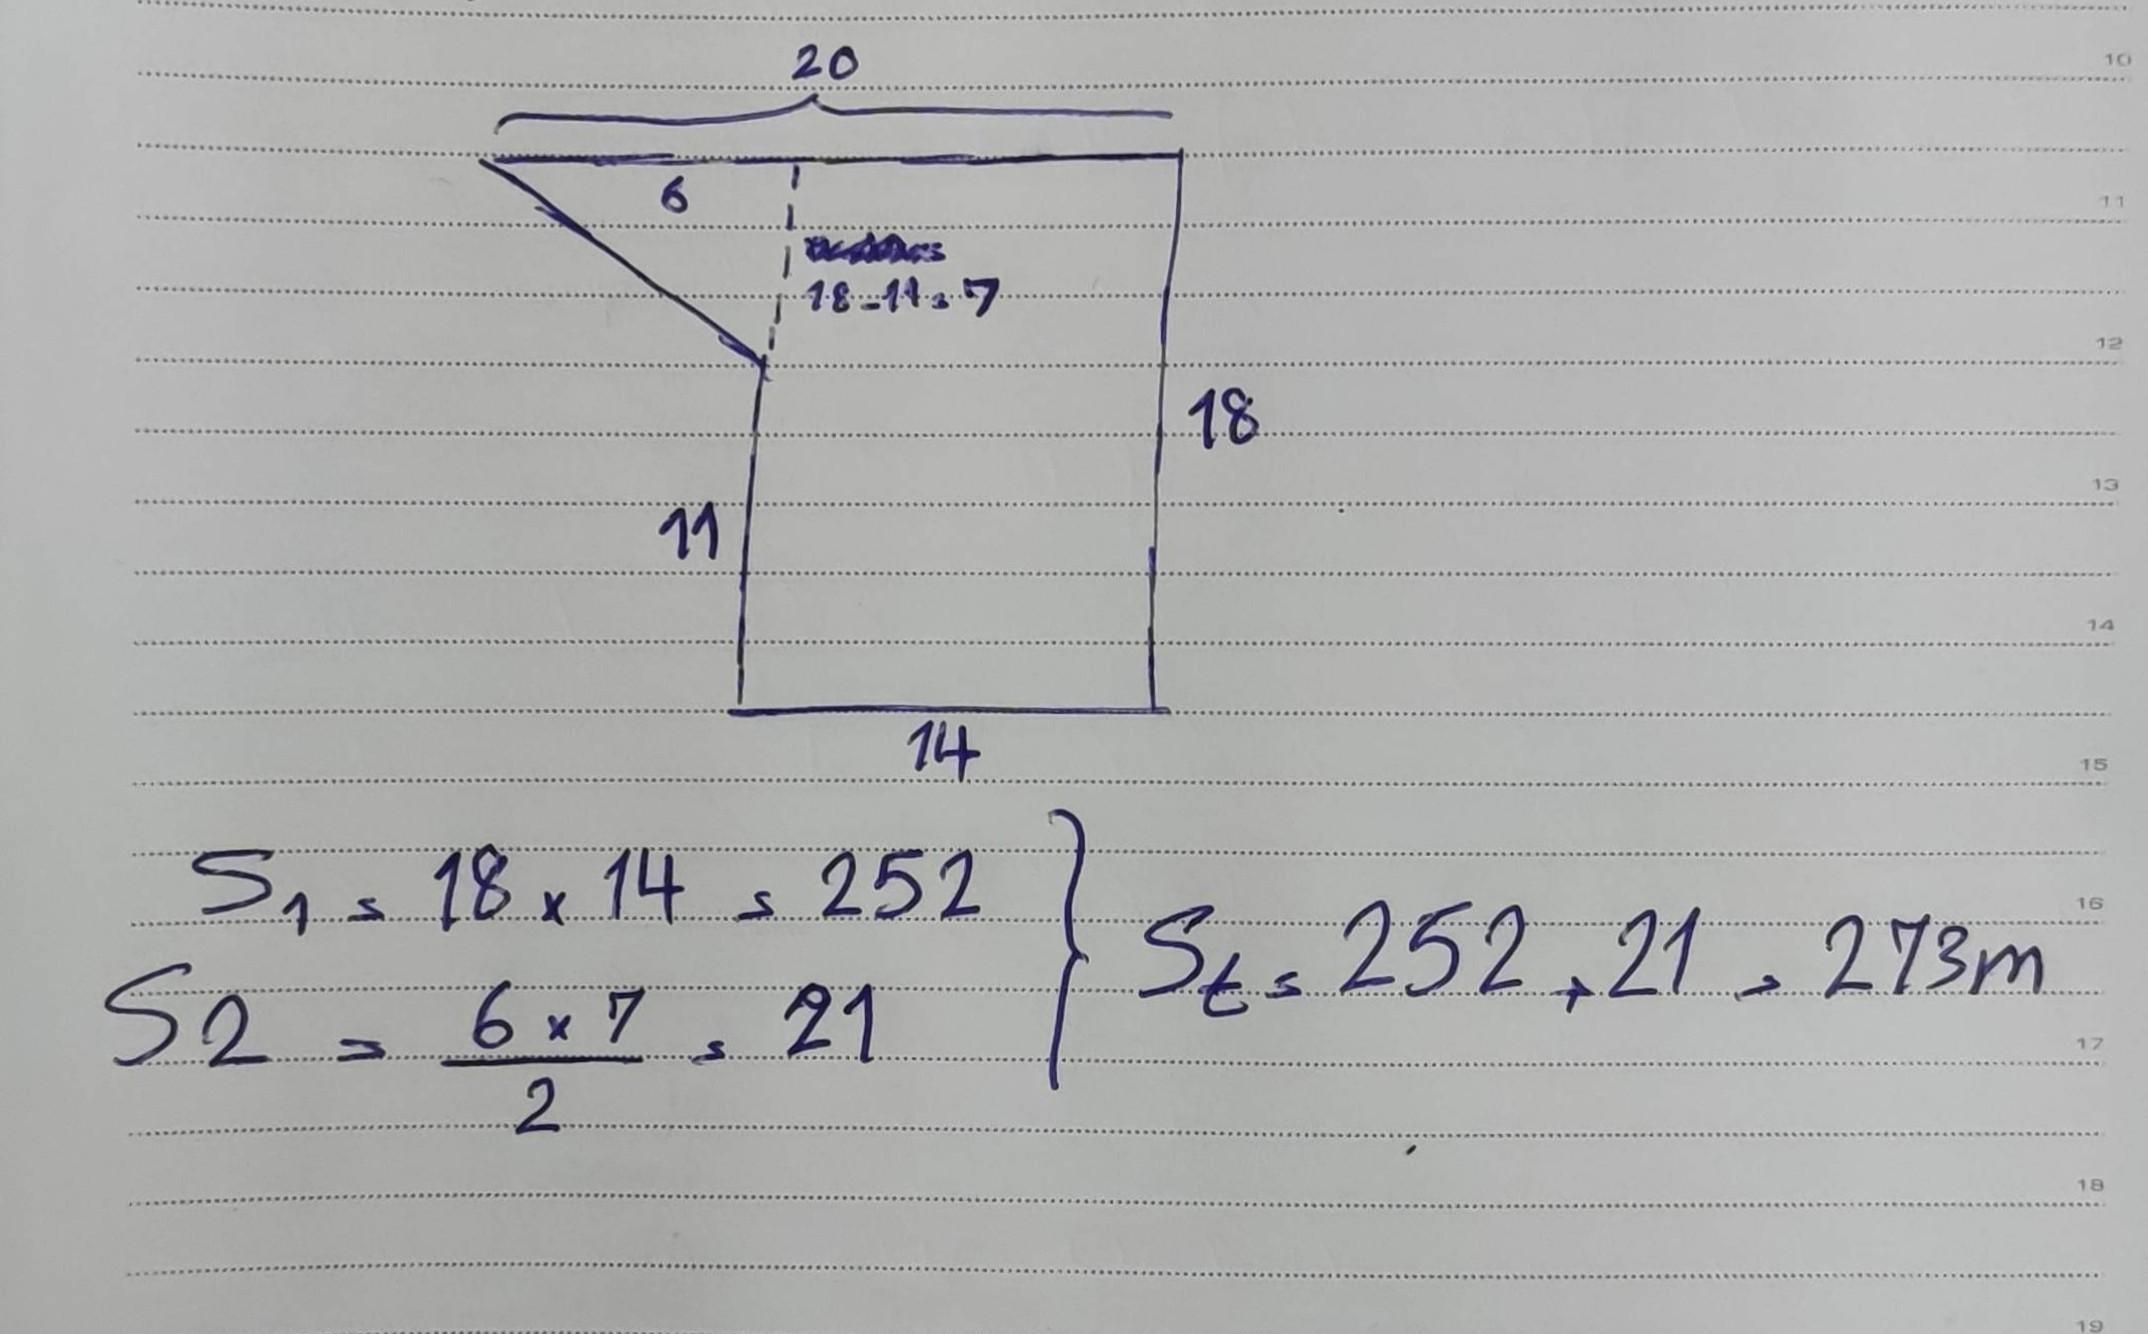 10
20
6
11
18-11=7
12
18
13
11
14
14
15
S1 = 18 x 14 = 252
16
St = 252 + 21 = 273m
S2 = 6 x 7 / 2 = 21
17
18
19